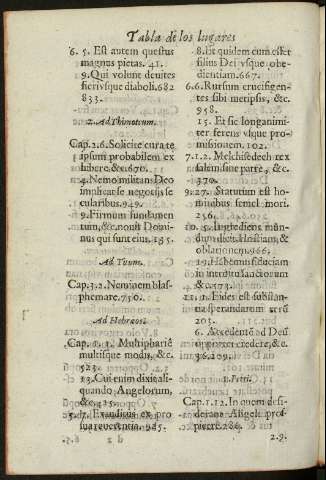 Tabla de los lugares
6. 5. Est autem questus
magnus pietas. 41.
9. Qui volunt deuites
fieri vsque diaboli. 682
833.
2. Ad Thimoteum.
Cap. 2. 6. Solicite cura te
ipsum probabilem ex
hibere, &c. 670.
4. Nemo militans Deo
implicat se negotijs se
cularibus. 949.
9. Firmum fundamen
tum, &c. nouit Domi-
nus qui sunt eius, 135.
Ad Titum.
Cap. 3. 2. Neminem blas-
phemare. 750.
Ad Hebraeos.
Cap. 1. 1. Multiphariè
multisque modis, &c.
523.
13. Cui enim dixit ali
quando Angelorum,
&c. 415.
5. 7. Exauditus ex pro
sua reuerentia. 985.
8. Et quidem cum esset
filius Dei vsque obe
dientiam. 667.
6. 6. Rursum crucifigen-
tes sibi metipsis, &c.
958.
15. Et sic longanimi
ter ferens vsque pro-
missionem. 102.
7. 1. 2. Melchisedech rex
salem sine patre, &c.
370.
9. 27. Statutum est ho-
minibus semel mori.
256.
10. 5. Ingrediens mun-
dum dicit. Hostiam, &
oblationem. 966.
19. Habemus fiduciam
in introitu sanctorum
&c. 573.
11. 1. Fides est substan-
tia sperandarum rerū
203.
6. Accedentē ad Deū
opportet credere, &c.
36. 209.
1. Petri.
Cap. 1. 12. In quem desi-
derant Angeli prosp
picere. 286.
d 2
2. 9.